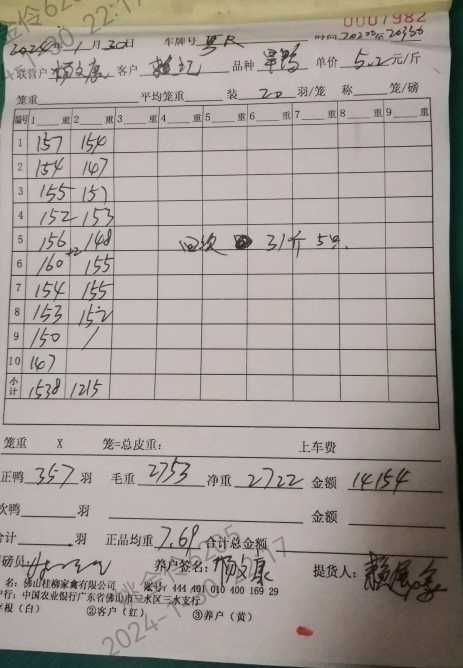 0001982
2024年1月30日 车牌号 时间 202 2035
联营户 杨文康 客户 品种 单价 5.2 元/斤
笼重 平均笼重 装 20 羽/笼 称 笼/磅
编号 1 重 2 重 3 重 4 重 5 重 6 重 7 重 8 重 9 重
1 157 154
2 154 147
3 155 151
4 152 153
5 156 148 回次 31斤 5只.
6 160 +2 155
7 154 155
8 153 152
9 150 /
10 147
小计 1538 1215
笼重 X 笼=总皮重: 上车费
正鸭 357 羽 毛重 2753 净重 2722 金额 14154
次鸭 羽 金额
合计 羽 正品均重 7.69 合计总金额
司磅员 养户签名: 杨文康 提货人:
名: 佛山桂柳家禽有限公司 账号: 444 401 010 400 169 29
户行: 中国农业银行广东省佛山市三水区三水支行
存根(白) ②客户(红) ③养户(黄)